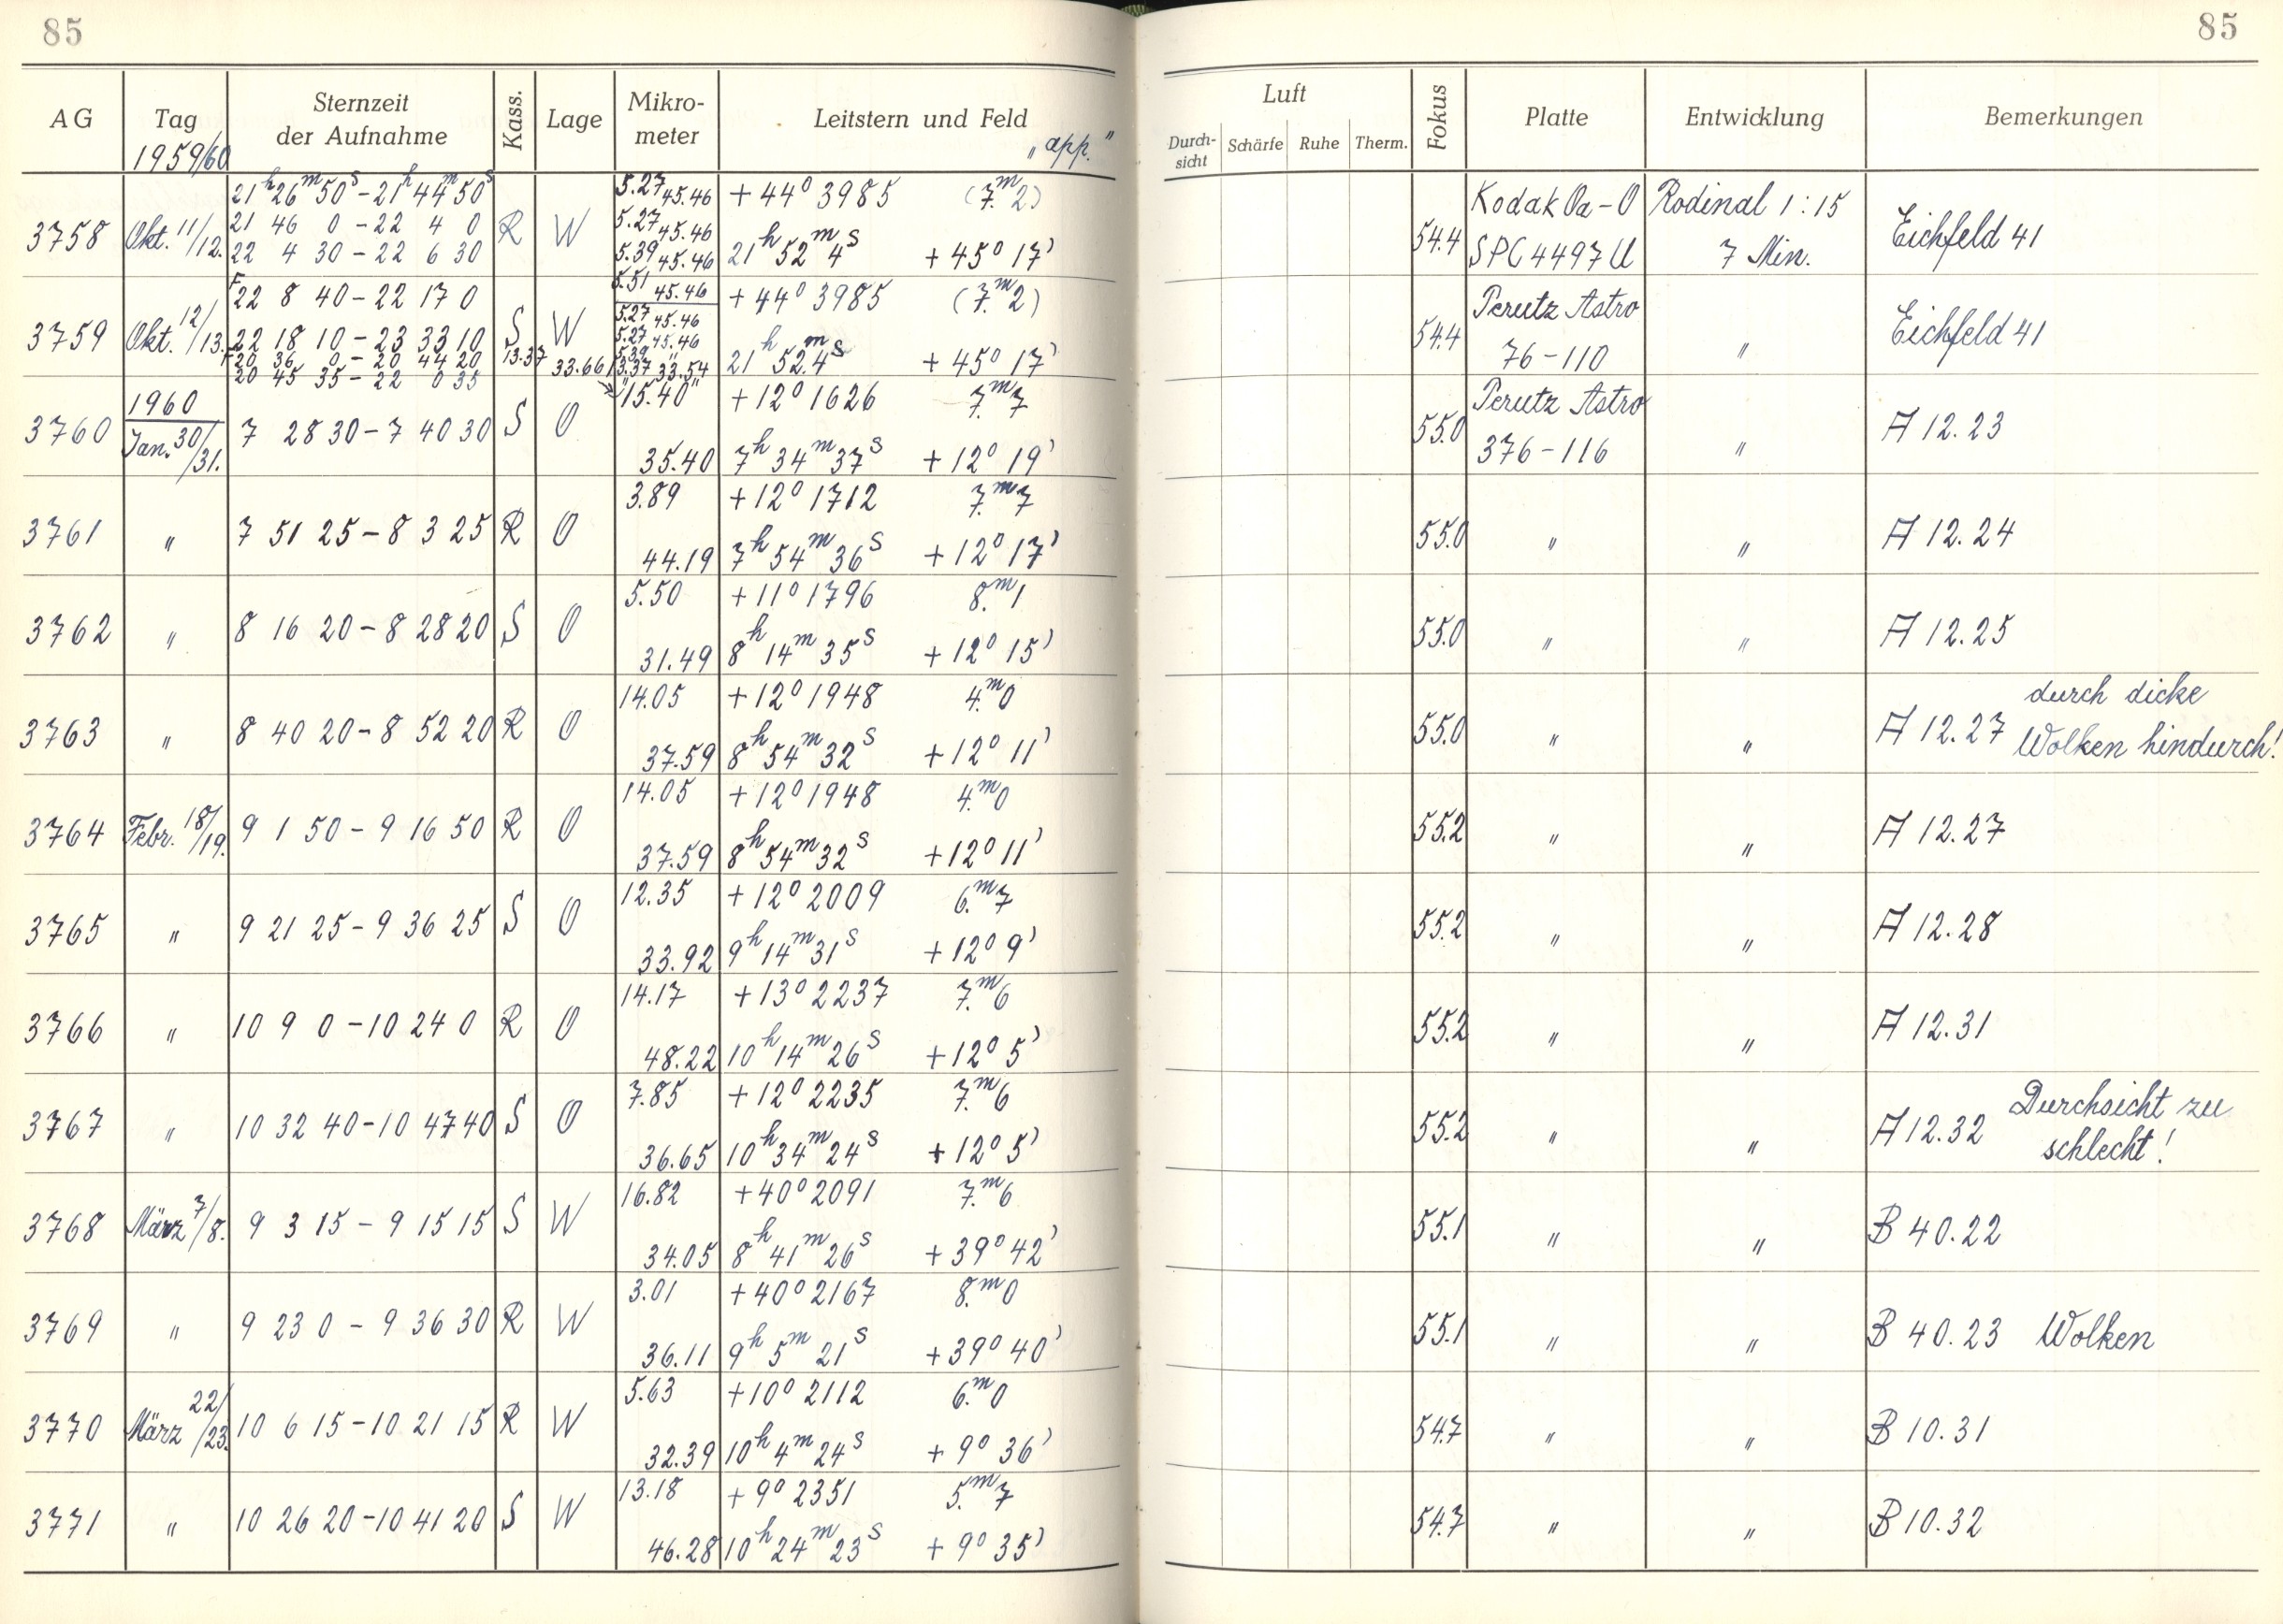 85
85
AG Tag Sternzeit der Aufnahme Kass. Lage Mikro-meter Leitstern und Feld Luft Fokus Platte Entwicklung Bemerkungen
1959/60 "app." Durch-sicht Schärfe Ruhe Therm.
21h 26m 50s – 21h 44m 50s 5.27 45.46 +44° 3985 (7.m2) Kodak Oa-O Rodinal 1:15
3758 Okt. 11/12. 21 46 0 – 22 4 0 R W 5.27 45.46 54.4 Eichfeld 41
22 4 30 – 22 6 30 5.39 45.46 21h 52m 4s +45° 17' SPC 4497 U 7 Min.
F 22 8 40 – 22 17 0 5.51 45.46 +44° 3985 (7.m2) Perutz Astro
3759 Okt. 12/13. 22 18 10 – 23 33 10 S W 5.27 45.46 54.4 " Eichfeld 41
5.27 45.46
F 20 36 0 – 20 44 20 13.37 33.66 5.39 " 21h 52m 4s +45° 17' 76-110
20 45 35 – 22 0 35 13.37 33.54
1960 "15.40" +12° 1626 7.m7 Perutz Astro
3760 Jan. 30/31. 7 28 30 – 7 40 30 S O 55.0 " A 12.23
35.40 7h 34m 37s +12° 19' 376-116
3.89 +12° 1712 7.m7
3761 " 7 51 25 – 8 3 25 R O 55.0 " " A 12.24
44.19 7h 54m 36s +12° 17'
5.50 +11° 1796 8.m1
3762 " 8 16 20 – 8 28 20 S O 55.0 " " A 12.25
31.49 8h 14m 35s +12° 15'
14.05 +12° 1948 4.m0 durch dicke
3763 " 8 40 20 – 8 52 20 R O 55.0 " " A 12.27 Wolken hindurch!
37.59 8h 54m 32s +12° 11'
14.05 +12° 1948 4.m0
3764 Febr. 18/19. 9 1 50 – 9 16 50 R O 55.2 " " A 12.27
37.59 8h 54m 32s +12° 11'
12.35 +12° 2009 6.m7
3765 " 9 21 25 – 9 36 25 S O 55.2 " " A 12.28
33.92 9h 14m 31s +12° 9'
14.17 +13° 2237 7.m6
3766 " 10 9 0 – 10 24 0 R O 55.2 " " A 12.31
48.22 10h 14m 26s +12° 5'
7.85 +12° 2235 7.m6 Durchsicht zu
3767 " 10 32 40 – 10 47 40 S O 55.2 " " A 12.32 schlecht!
36.65 10h 34m 24s +12° 5'
16.82 +40° 2091 7.m6
3768 März 7/8. 9 3 15 – 9 15 15 S W 55.1 " " B 40.22
34.05 8h 41m 26s +39° 42'
3.01 +40° 2167 8.m0
3769 " 9 23 0 – 9 36 30 R W 55.1 " " B 40.23 Wolken
36.11 9h 5m 21s +39° 40'
5.63 +10° 2112 6.m0
3770 März 22/23. 10 6 15 – 10 21 15 R W 54.7 " " B 10.31
32.39 10h 4m 24s +9° 36'
13.18 +9° 2351 5.m7
3771 " 10 26 20 – 10 41 20 S W 54.7 " " B 10.32
46.28 10h 24m 23s +9° 35'